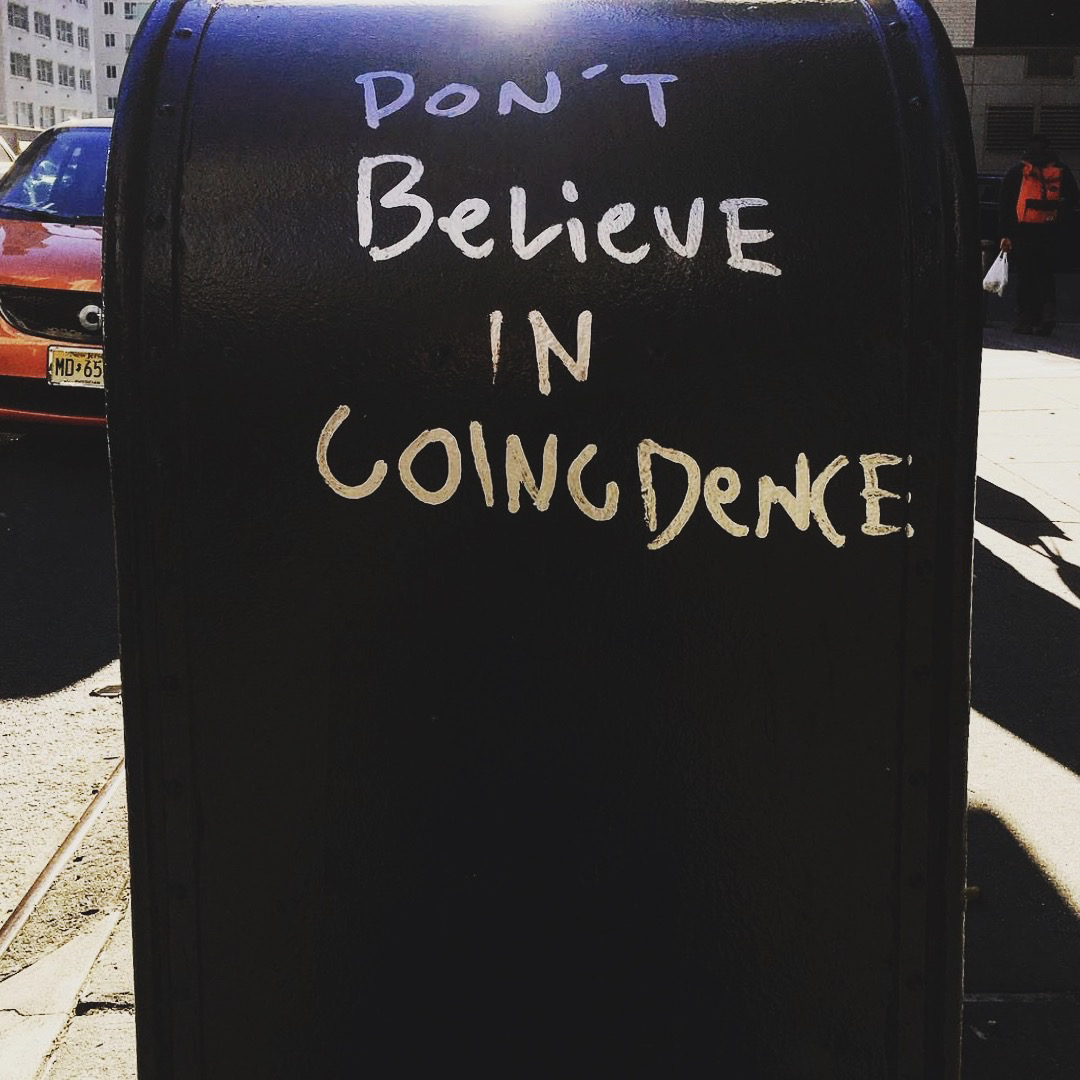 DON'T
BeLieVE
IN
COINCDeNCE
MD 65